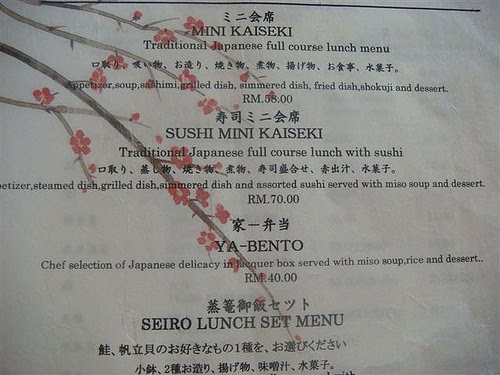 ミニ会席
MINI KAISEKI
Traditional Japanese full course lunch menu
口取り、吸い物、お造り、焼き物、煮物、揚げ物、お食事、水菓子。
Appetizer,soup,sashimi,grilled dish, simmered dish, fried dish,shokuji and dessert.
RM.58.00
寿司ミニ会席
SUSHI MINI KAISEKI
Traditional Japanese full course lunch with sushi
口取り、蒸し物、焼き物、煮物、寿司盛合せ、赤出汁、水菓子。
petizer,steamed dish,grilled dish,simmered dish and assorted sushi served with miso soup and dessert.
RM.70.00
家一弁当
YA-BENTO
Chef selection of Japanese delicacy in lacquer box served with miso soup,rice and dessert..
RM.40.00
蒸篭御飯セット
SEIRO LUNCH SET MENU
鮭、帆立貝のお好きなもの1種を、お選びください
小鉢、2種お造り、揚げ物、味噌汁、水菓子。